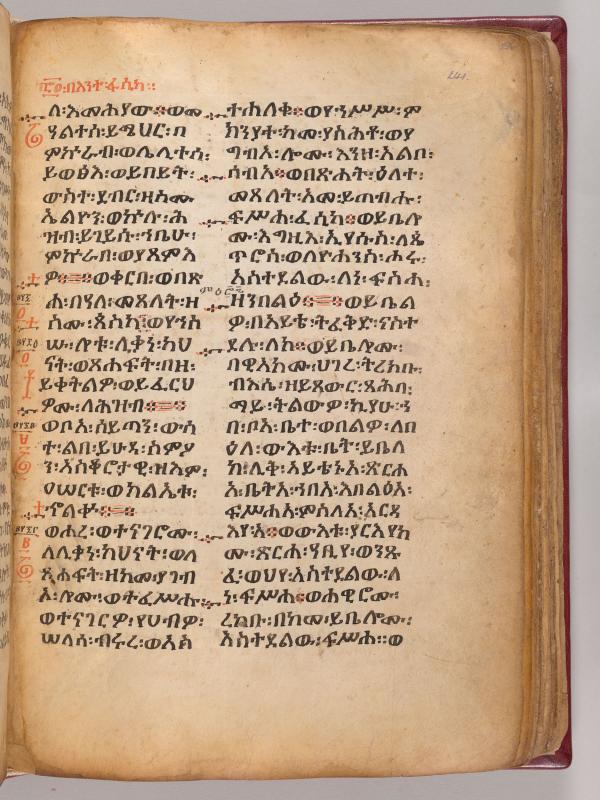 በእንተ፡ፋሲካ።
241.
ለ፡እመሕያው፨ወመ
ዓልተሰ፡ይሜህር፡በ
ምኵራብ፡ወሌሊተሰ፡
ይወፅእ፡ወይበይት፡
ውስተ፡ደብር፡ዘስሙ
ኤልዮን፡ወኵሉ፡ሕ
ዝብ፡ይገይሱ፡ኀቤሁ፡
ምኵራብ፡ወያጸምእ
ዎ፨ወቀርበ፡ወበጽ
ሐ፡በዓለ፡መጸለት፡ዘ
ስሙ፡ጳስካ፡ወየኀስ
ሡ፡ሉቱ፡ሊቃነ፡ካህ
ናት፡ወጸሐፍት፡በዘ፡
ይቀትልዎ፡ወይፈርህ
ዎሙ፡ለሕዝብ፨
ወቦአ፡ሰይጣን፡ውስ
ተ፡ልበ፡ይሁዳ፡ስምዖ
ን፡አስቆሮታዊ፡ዘእም፡
ዐሠርቱ፡ወክልኤቱ፡
ኆልቍ፨
ወሖረ፡ወተናገሮሙ፡
ለሊቃነ፡ካህናት፡ወለ
ጸሐፍት፡ዘከመ፡ያገብ
እ፡ሎሙ፡ወተፈሥሑ፨
ወተናገርዎ፡የሀብዎ፡
ሠላሳ፡ብሩረ፡ወአስ
ተሐለቁ፨ወየኀሥሥ፡ም
ክንያተ፡ከመ፡ያስሕቶ፡ወያ
ግብእ፡ሎሙ፡እንዘ፡አልቦ፡
ሰብእ፨ወበጽሐት፡ዕለተ፡
መጸለት፡እመ፡ይጠብሑ፡
ፍሥሐ፡ፈሲካ፨ወይቤሉ
ሙ፡እግዚእ፡ኢየሱስ፡ለጴ
ጥሮስ፡ወለዮሐንስ፡ሖሩ፡
አስተደልው፡ለነ፡ፍስሐ፡
ዘንበልዕ፨ወይቤል
ዎ፡በአይቴ፡ትፈቅድ፡ናስተ
ደሉ፡ለከ፨ወይቤሎሙ፡
በዊአክሙ፡ሀገረ፡ትረክቡ፡
ብእሴ፡ዘይጸውር፡ጻሕበ፡
ማይ፡ትልውዎ፡ኪያሁ፡ኀ
በ፡ቦአ፡ቤተ፡ወበልዎ፡ለበ
ዕለ፡ውእቱ፡ቤት፡ይቤለ
ከ፡ሊቅ፡አይቴኑአ፡ጽርሐ
አ፡ቤትአ፡ኀበአ፡እበልዕአ፡
ፍሥሐአ፡ምስለአ፡አርዳ
እየ፡አ፨ወውእቱ፡ያርእየክ
ሙ፡ጽርሐ፡ዓቢየ፡ወንጹ
ፈ፡ወህየ፡አስተደልው፡ለ
ነ፡ፍሥሐ፨ወሐዊሮሙ፡
ረከቡ፡በከመ፡ይቤሎሙ፡
አስተደልው፡ፍሥሐ፡፡ወ